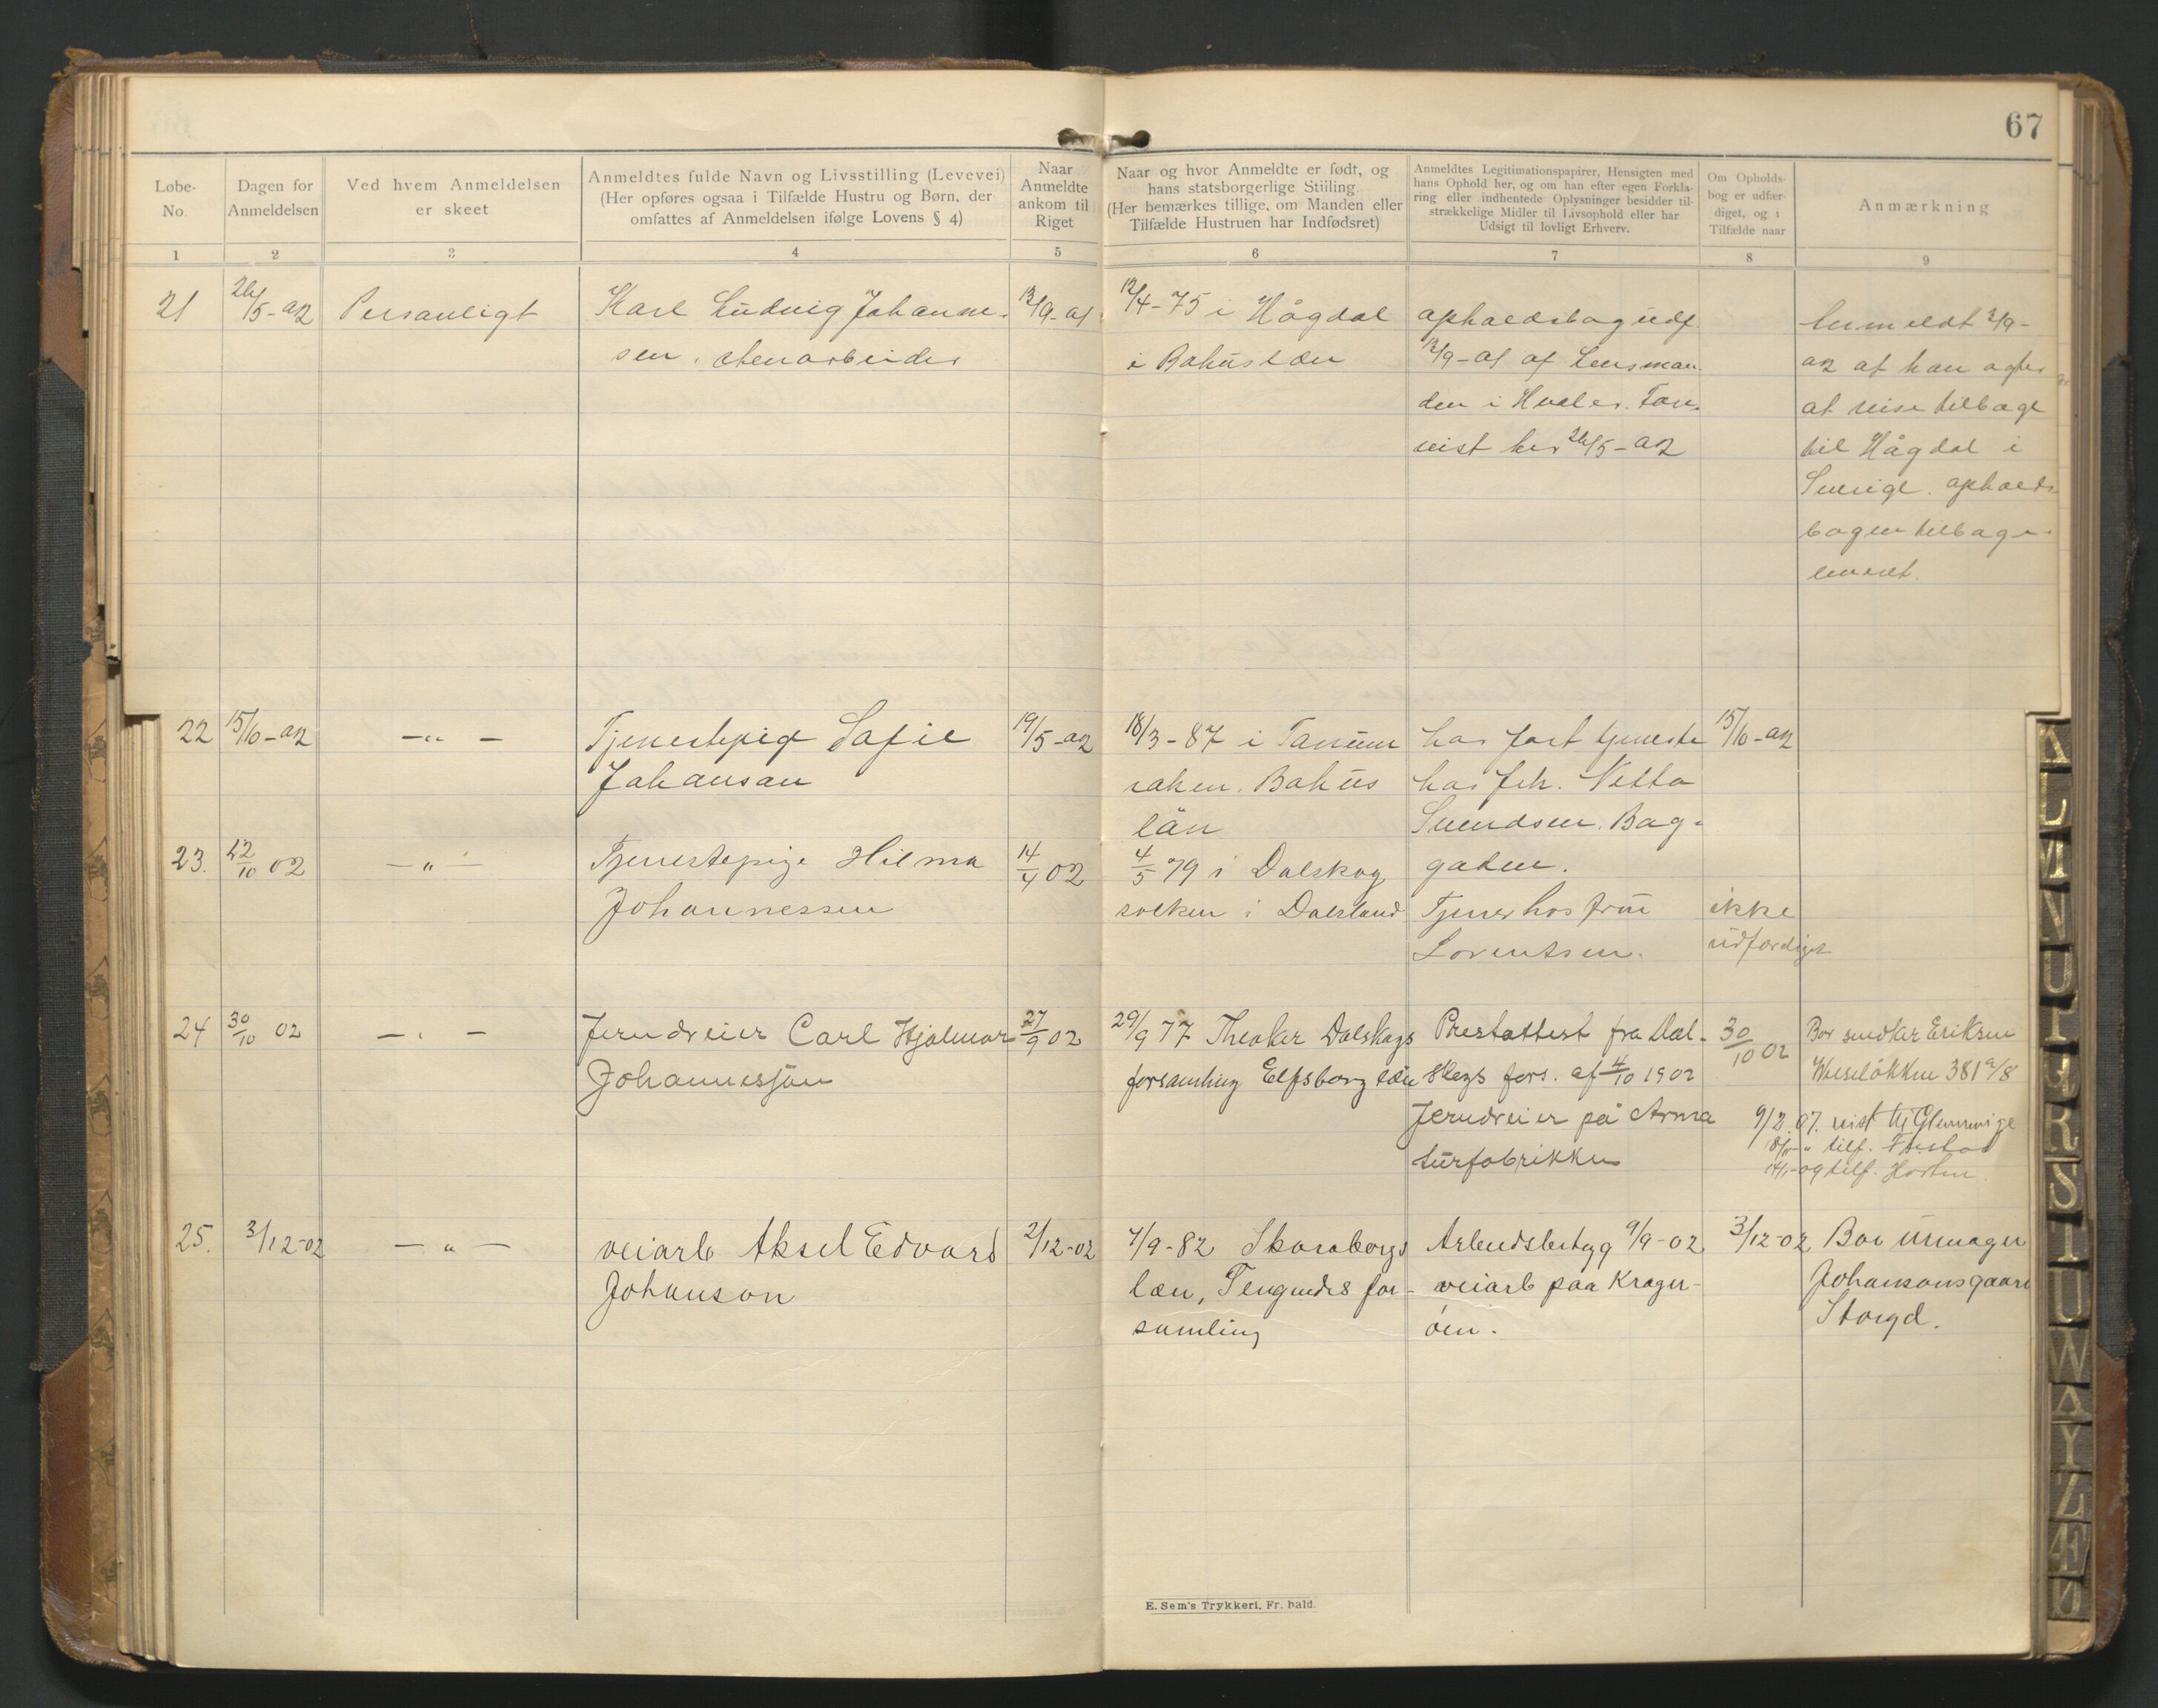 67
Løbe-
No.
Dagen for
Anmeldelsen
Ved hvem Anmeldelsen
er skeet
Anmeldtes fulde Navn og Livsstilling (Levevei)
(Her opføres ogsaa i Tilfælde Hustru og Børn, der
omfattes af Anmeldelsen ifølge Lovens § 4)
Naar
Anmeldte
ankom til
Riget
Naar og hvor Anmeldte er født, og
hans statsborgerlige Stiiling.
(Her bemærkes tillige, om Manden eller
Tilfælde Hustruen har Indfødsret)
Anmeldtes Legitimationspapirer, Hensigten med
hans Ophold her, og om han efter egen Forkla-
ring eller indhentede Oplysninger besidder til-
strækkelige Midler til Livsophold eller har
Udsigt til lovligt Erhverv.
Om Opholds-
bog er udfær-
diget, og i
Tilfælde naar
Anmærkning
1 2 3 4 5 6 7 8 9
21
26/5-02
Personligt
Karl Ludvig Johanne-
sen. stenarbeider
12/9-01
12/4-75 i Hågdal
i Bohuslæn
opholdsbog udf.
12/9-01 af Lensman-
den i Hvaler. Fore-
vist her 26/5-02
02 at han agter
at reise tilbage
til Hågdal i
Sverige. opholds-
bogen tilbage-
leveret.
22
15/10-02
-"-
Tjenestepige Sofie
Johanson
19/5-02
18/3-87 i Tanum
soken. Bohus
län
har fast tjeneste
hos Frk. Netta
Svendsen. Bag-
gaden.
15/10-02
23.
22/10 02
-"-
Tjenestepige Hilma
Johannessen
14/4 02
4/5 79 i Dalskog
socken i Dalsland
Tjener hos fru
Lorentsen.
ikke
udfærdiget
24
30/10 02
-"-
Jerndreier Carl Hjalmar
Johannesson
27/9 02
29/9 77 Dalskogs
forsamling Elfsborg læn
Prestattest fra Dal-
skogs fors. af 4/10 1902
Jerndreier på Arma
turfabrikken
30/10 02
Bor smedker Eriksen
381 a/8
9/2.07. vist til Glemminge
" tilf. Fr.stad
og tilf. Horten.
25.
3/12-02
-"-
veiarb Aksel Edvard
Johanson
2/12-02
7/9-82 Skaraborgs
læn, for-
samling
Arbeidsbetyg 9/9-02
veiarb paa Krager-
öen.
3/12-02
Bor urmager
Johansonsgaard
Storgd.
E. Sem's Trykkeri, Fr. hald.
L
M
N
O
P
R
S
T
U
W
A
Y
Z
Æ
Ø